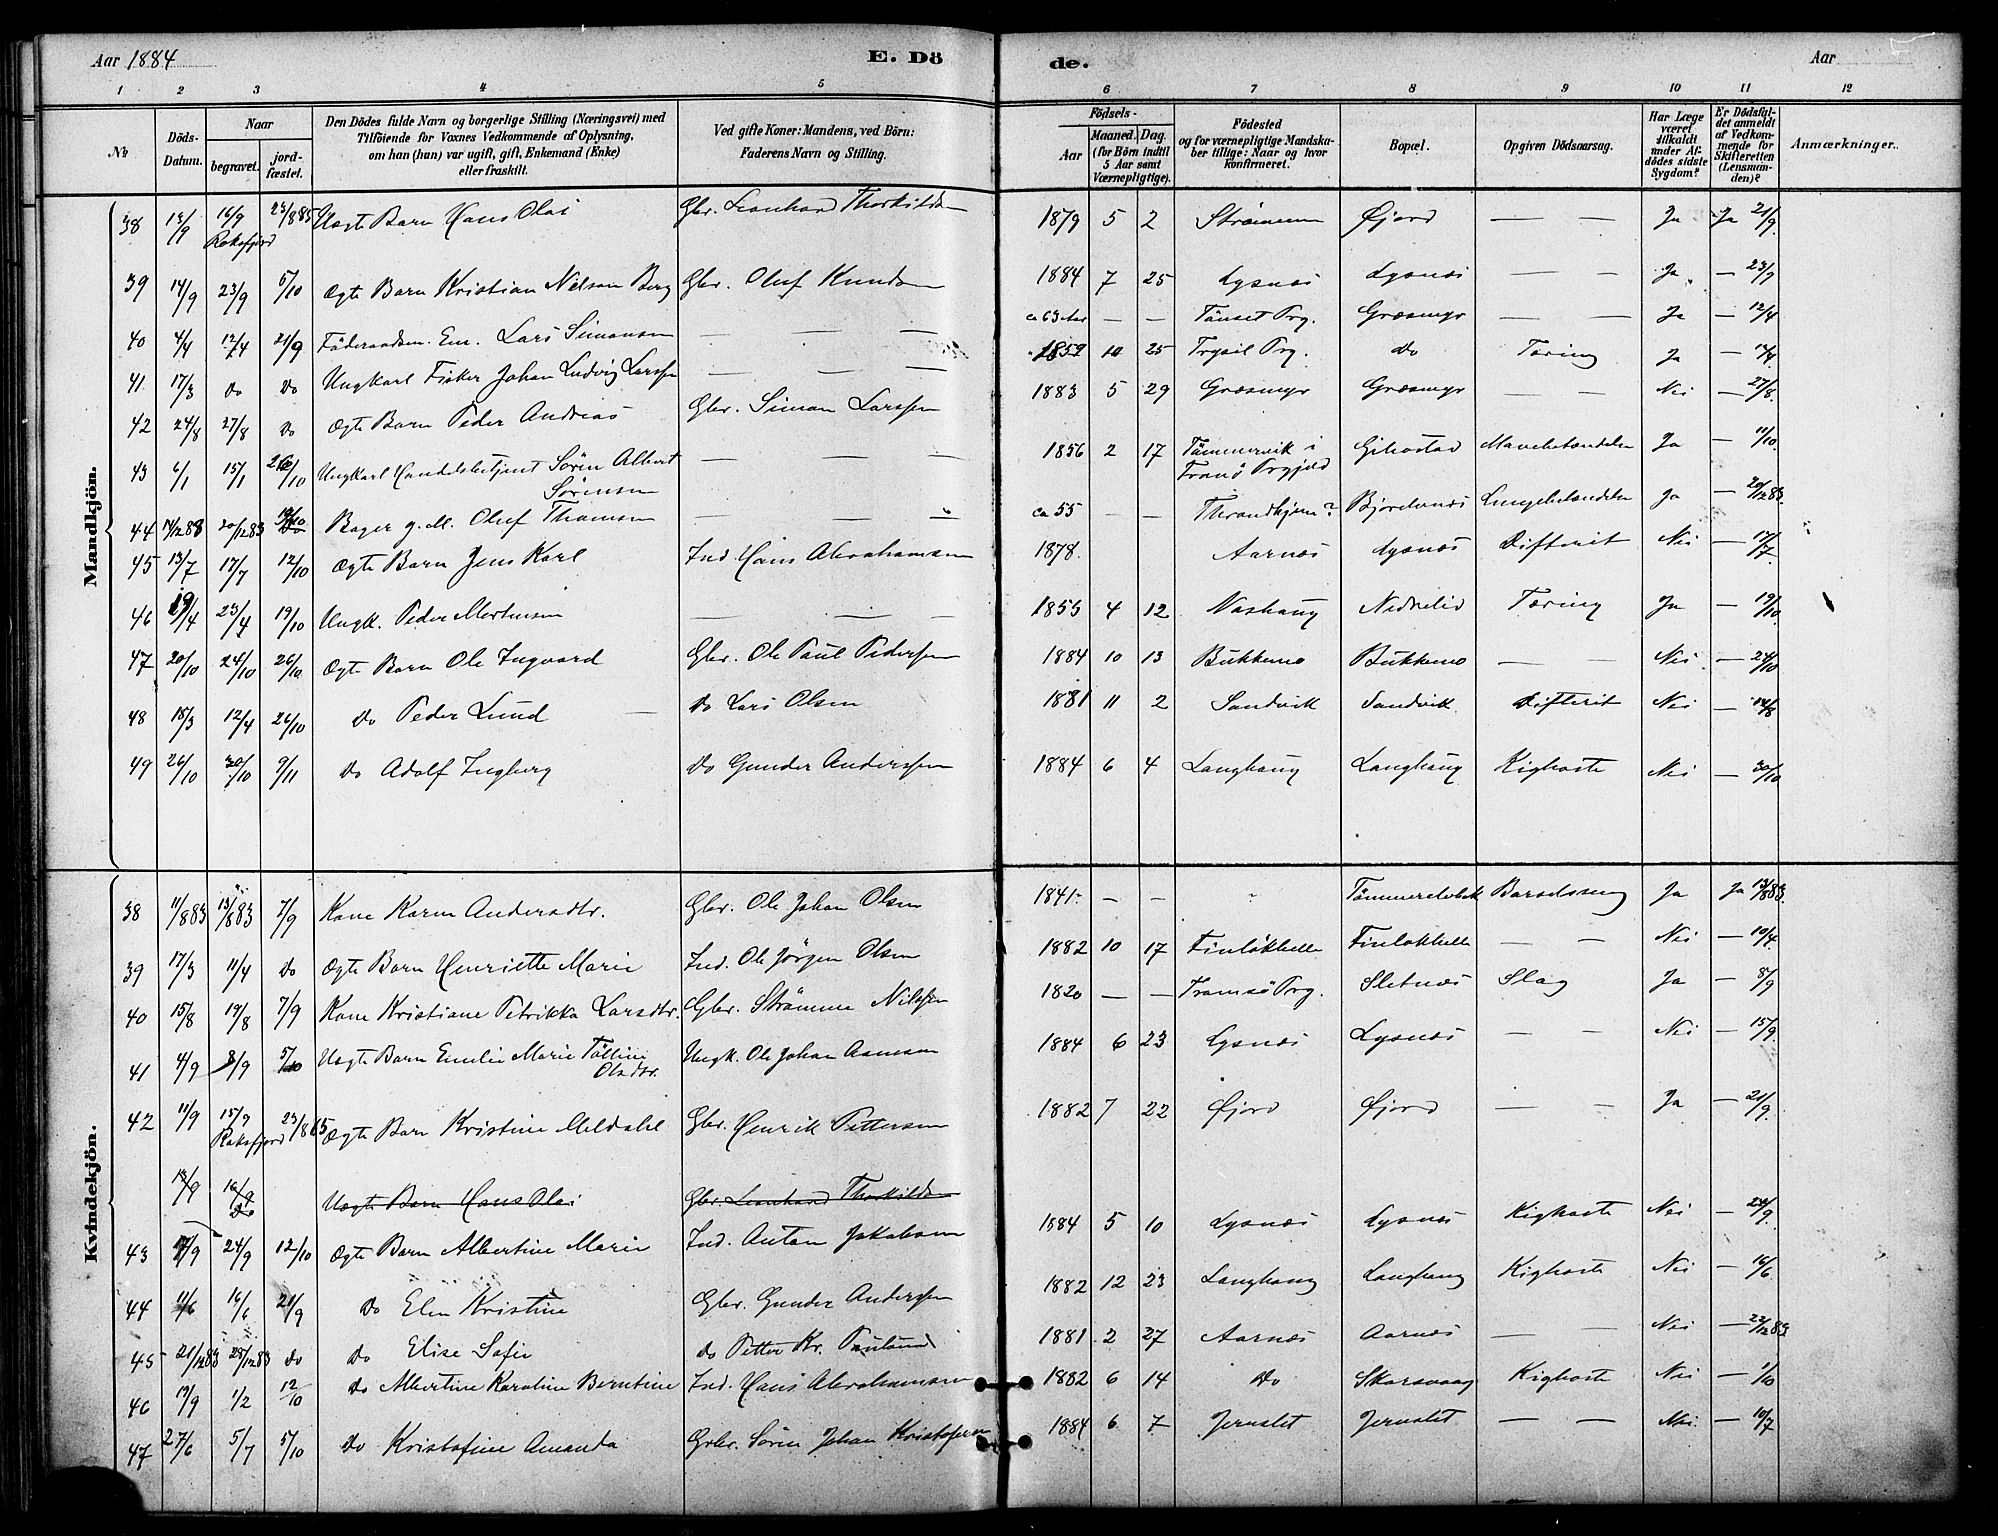 Aar 1884
E. Dö
de.
Aar
1 2 3 4 5 6 7 8 9 10 11 12
№
Döds-Datum.
Naar
begravet.
jordfæstet.
Den Dödes fulde Navn og borgerlige Stilling (Næringsvei) med
Tilföiende for Voxnes Vedkommende af Oplysning,
om han (hun) var ugift, gift, Enkemand (Enke)
eller fraskilt.
Ved gifte Koner: Mandens, ved Börn:
Faderens Navn og Stilling.
Födsels-
Aar
Maaned. Dag.
(for Börn indtil
5 Aar samt
Værnepligtige).
Födested
og for værnepligtige Mandska-
ber tillige: Naar og hvor
konfirmeret.
Bopæl.
Opgiven Dödsaarsag.
Har Læge
været
tilkaldt
under Af-
dödes sidste
Sygdom?
Er Dödsfal-
det anmeldt
af Vedkom-
mende for
Skifteretten
(Lensman-
den)?
Anmærkninger.
Mandkjön.
38 13/9 16/9 23/885 Uægte Barn Hans Olai Gbr. Leonhard Thorkildsen 1879 5 2 Strømmen Øjord — — Ja Ja 21/9
Roksfjord
39 14/9 23/9 5/10 Ægte Barn Kristian Nilsson Berg Gbr. Oluf Knudsen 1884 7 25 Lysnæs Lysnæs — — Ja — 23/9
40 4/4 12/4 21/9 Föderaadsm. Em. Lars Simonsen — — — ca 63 Aar — — Tönset Prg. Græsmyr — — Ja — 12/4
41 17/3 Do Do Ungkarl Fisker Johan Ludvig Larssen — — — 1859 10 25 Trysil Prg. Do Tæring Ja
42 24/8 27/8 Do Ægte Barn Peder Andreas Gbr. Simon Larssen 1883 5 29 Græsmyr Græsmyr — — Nei — 27/8
43 6/1 15/1 26/10 Ungkarl Handelsbetjent Sörin Albert — — — 1856 2 17 Tömmervik i Gibostad Mavebetændelse Ja — 11/10
Sörensen Tranö Prgjeld
44 14/1283 20/1283 19/10 Bager g. M. Oluf Thomsen — — — ca 55 — — Throndhjem? Bjorelvnæs Lungebetændelse Ja — 20/1283
45 13/7 17/7 12/10 Ægte Barn Jens Karl Ind. Hans Abrahamsen 1878. Aarnæs Lysnæs Difterit Nei — 17/7
46 19/4 23/4 19/10 Ungk. Peder Mortensen — — — 1855 4 12 Vashaug Nedrelid Tæring Ja — 19/10
47 20/10 24/10 26/10 Ægte Barn Ole Ingvard Gbr. Ole Paul Pedersen 1884 10 13 Bukkemo Bukkemo — — Nei — 24/10
48 18/3 12/4 26/10 Do Peder Lund — Do Lars Olsen 1881 11 2 Sandvik Sandvik Difterit Nei
49 26/10 30/10 9/11 Do Adolf Ingberg Do Gunder Anderssen 1884 6 4 Langhaug Langhaug Kighoste Nei — 30/10
Kvindekjön.
38 11/883 13/883 7/9 Kone Karen Andersdtr. Gbr. Ole Johan Olsen 1841 — — Tömmerelvbek Barselseng Ja Ja 13/883
39 17/3 11/4 Do Ægte Barn Henriette Marie Ind. Ole Jörgen Olsen 1882 10 17 Finlökhelle Finlökhelle — — Nei — 10/4
40 15/8 19/8 7/9 Kone Kristiane Petrikka Larsdtr. Gbr. Strømme Nilssen 1820 — — Tromsö Prg. Sletnæs Slag Ja — 8/9
41 4/9 8/9 5/10 Uægte Barn Emilie Marie Tölline Ungk. Ole Johan Aamsen 1884 6 23 Lysnæs Lysnæs — — Nei — 15/9
Olsdtr.
42 11/9 15/9 23/885 Ægte Barn Kristine Meldahl Gbr. Henrik Pettersen 1882 7 22 Øjord Øjord — — Ja — 21/9
Roksfjord
13/9 16/9 Uægte Barn Hans Olai Gbr. Leonhard Thorkildsen
Do
43 17/9 24/9 12/10 Ægte Barn Albertine Marie Ind. Anton Jakobsen 1884 5 10 Lysnæs Lysnæs Kighoste Nei — 24/9
44 11/6 16/6 21/9 Do Elen Kristine Gbr. Gunder Anderssen 1882 12 23 Langhaug Langhaug Kighoste Nei — 16/6
45 21/1283 28/1283 Do Do Elise Sofie Do Petter Kr. Paulund 1881 2 27 Aarnæs Aarnæs — — Nei — 22/1283
46 19/9 1/2 12/10 Do Albertine Karoline Berntine Ind. Hans Abrahamsen 1882 6 14 Do Skarsvaag Kighoste Nei — 1/10
47 27/6 5/7 5/10 Do Kristofine Amanda Gbr. Sörin Johan Kristofersen 1884 6 7 Jernslet Jernslet — — Nei — 10/7